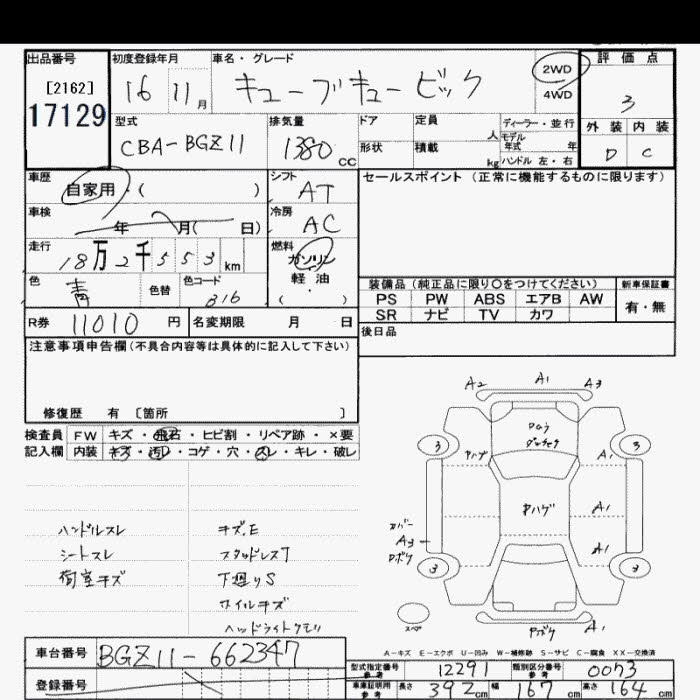 出品番号 初度登録年月 車名・グレード 評価点
[2162] 16 11月 キューブキュービック 2WD 4WD 3
17129
型式 排気量 ドア 定員 人 ディーラー・並行 外装 内装
CBA-BGZ11 1380 CC 形状 積載 kg モデル年式 年 D C
ハンドル 左・右
車歴 自家用・( ) シフト AT セールスポイント(正常に機能するものに限ります)
車検 年 月( 日) 冷房 AC
走行 18万2千553km 燃料 ガソリン
軽油
( )
色 青 色替 色コード B16
装備品(純正品に限り○をつけてください) 新車保証書
PS PW ABS エアB AW 有・無
SR ナビ TV カワ
R券 11010円 名変期限 月 日 後日品
注意事項申告欄(不具合内容等は具体的に記入して下さい)
修復歴 有 [箇所 ]
検査員 FW キズ・飛石・ヒビ割・リペア跡・×要
記入欄 内装 キズ・汚レ・コゲ・穴・スレ・キレ・破レ
A2 A1 A3
3 3
A1
Pハゲ
A1
カバー
A3
Pボケ
A1
3 3
スペア
Pボケ
ハンドルスレ キズ.E
シートスレ スタッドレス7
荷室キズ 下廻りS
ホイルキズ
ヘッドライトクモリ
A-キズ E-エクボ U-凹み W-補修跡 S-サビ C-腐食 XX-交換済
車台番号 BGZ11-662347
型式指定番号 参考 12291 類別区分番号 参考 0073
登録番号
車庫証明用 参考 長さ 392cm 幅 167cm 高さ 164cm